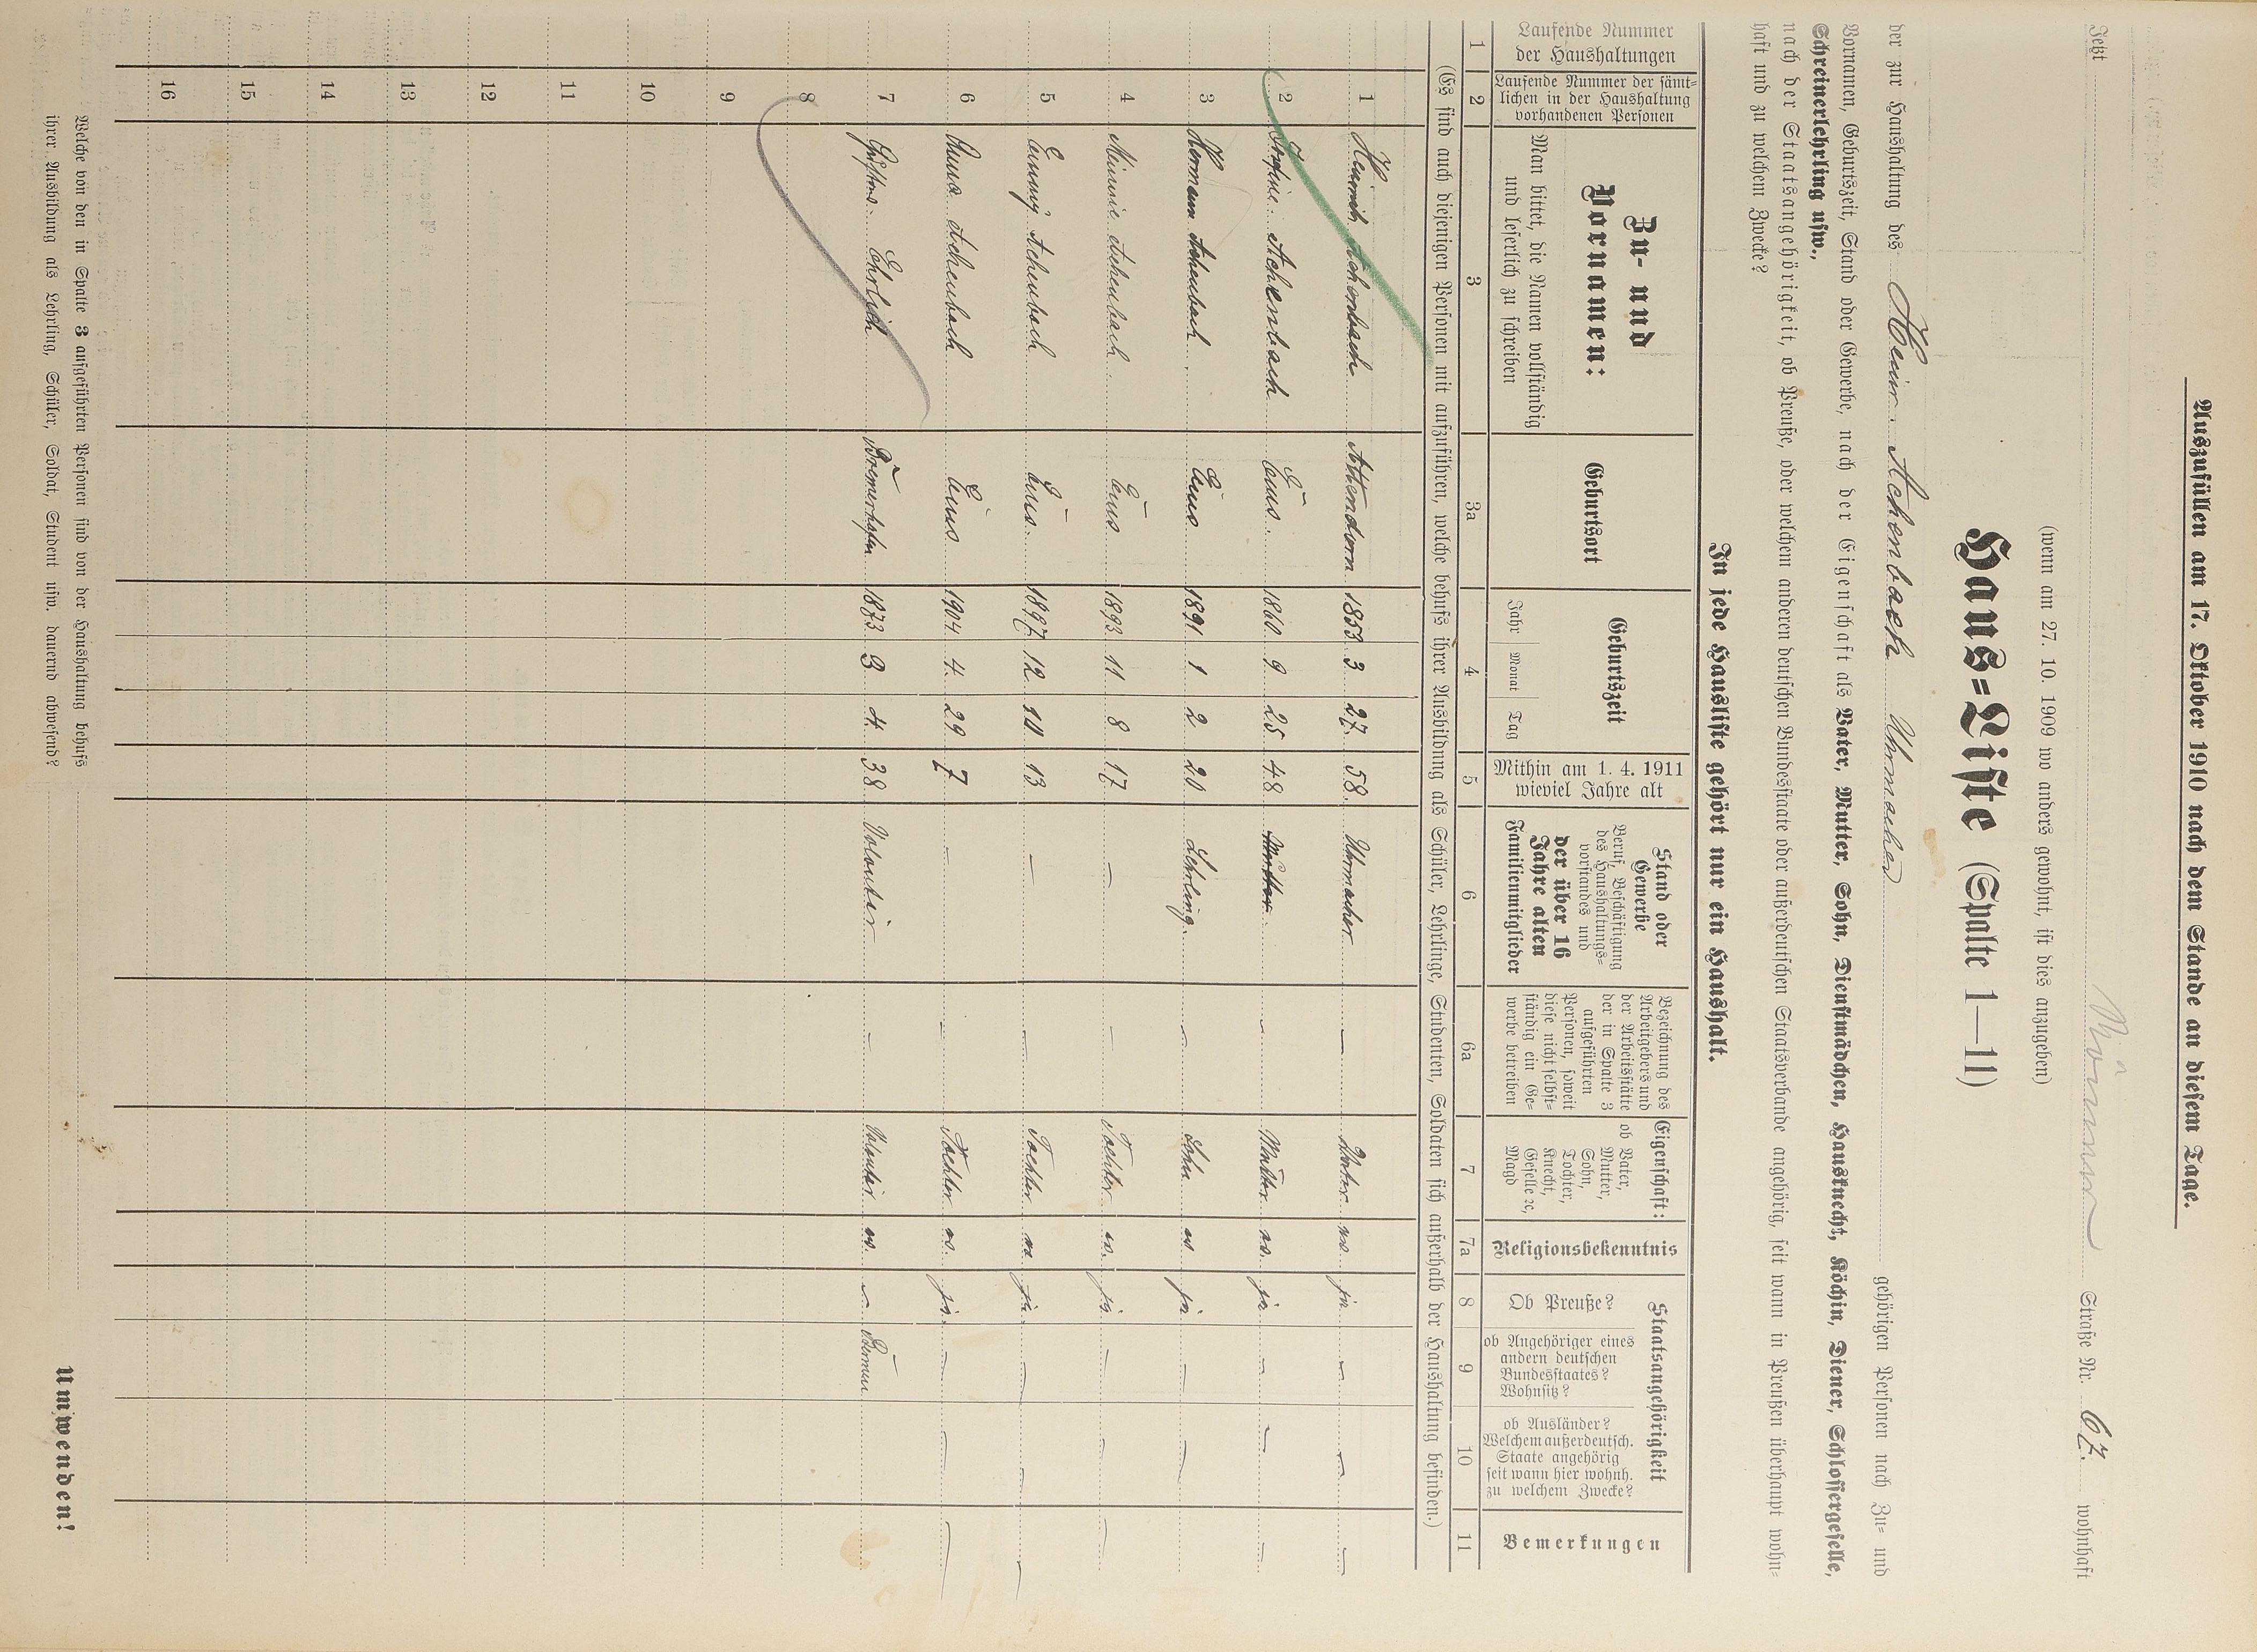 Auszufüllen am 17. Oktober 1910 nach dem Stande an diesem Tage.
Jetzt Römer Straße Nr. 67. wohnhaft
(wenn am 27. 10. 1909 wo anders gewohnt, ist dies anzugeben)
Haus-Liste (Spalte 1—11)
der zur Haushaltung des Heinr. Achenbach Uhrmacher gehörigen Personen nach Zu- und
Vornamen, Geburtszeit, Stand oder Gewerbe, nach der Eigenschaft als Vater, Mutter, Sohn, Dienstmädchen, Hausknecht, Köchin, Diener, Schlossergeselle,
Schreinerlehrling usw.,
nach der Staatsangehörigkeit, ob Preuße, oder welchen anderen deutschen Bundesstaate oder außerdeutschen Staatsverbande angehörig, seit wann in Preußen überhaupt wohn-
haft und zu welchem Zwecke?
In jede Hausliste gehört nur ein Haushalt.
Laufende Nummer der Haushaltungen
Laufende Nummer der sämt- lichen in der Haushaltung vorhandenen Personen
Zu- und Vornamen:
Man bittet, die Namen vollständig und leserlich zu schreiben
Geburtsort
Geburtszeit
Jahr Monat Tag
Mithin am 1. 4. 1911 wieviel Jahre alt
Stand oder Gewerbe
Beruf, Beschäftigung des Haushaltungs- vorstandes und der über 16 Jahre alten Familienmitglieder
Bezeichnung des Arbeitgebers und der Arbeitsstätte der in Spalte 3 aufgeführten Personen, soweit diese nicht selbst- ständig ein Ge- werbe betreiben
Eigenschaft:
ob Vater, Mutter, Sohn, Tochter, Knecht, Geselle ꝛc, Magd
Religionsbekenntnis
Staatsangehörigkeit
Ob Preuße?
ob Angehöriger eines andern deutschen Bundesstaates? Wohnsitz?
ob Ausländer? Welchem außerdeutsch. Staate angehörig seit wann hier wohnh. zu welchem Zwecke?
Bemerkungen
1 2 3 3a 4 5 6 6a 7 7a 8 9 10 11
(Es sind auch diejenigen Personen mit aufzuführen, welche behufs ihrer Ausbildung als Schüler, Lehrlinge, Studenten, Soldaten sich außerhalb der Haushaltung befinden.)
1 Heinrich Achenbach Attendorn 1853 3 27. 58. Uhrmacher — Vater ev. ja — — —
2 Achenbach Ems. 1860. 9. 25 48 Mutter — Mutter ev. ja — — —
3 Hermann Achenbach Ems 1891 1 2 20 Lehrling. — Sohn ev ja — —
4 Minnie Achenbach Ems 1893 11 8 17 — — Tochter ev. ja — — —
5 Emmy Achenbach Ems. 1897 12 10 13 — — Tochter ev ja — — —
6 Anna Achenbach Ems 1904 4. 29 7 — — Tochter ev. ja. — — —
7 Ehrlich Bremerhafen 1873 3 4. 38 Volontär — Volontär ev. — Bremen
8
9
10
11
12
13
14
15
16
Welche von den in Spalte 3 aufgeführten Personen sind von der Haushaltung behufs
ihrer Ausbildung als Lehrling, Schüler, Soldat, Student usw. dauernd abwesend?
Umwenden!